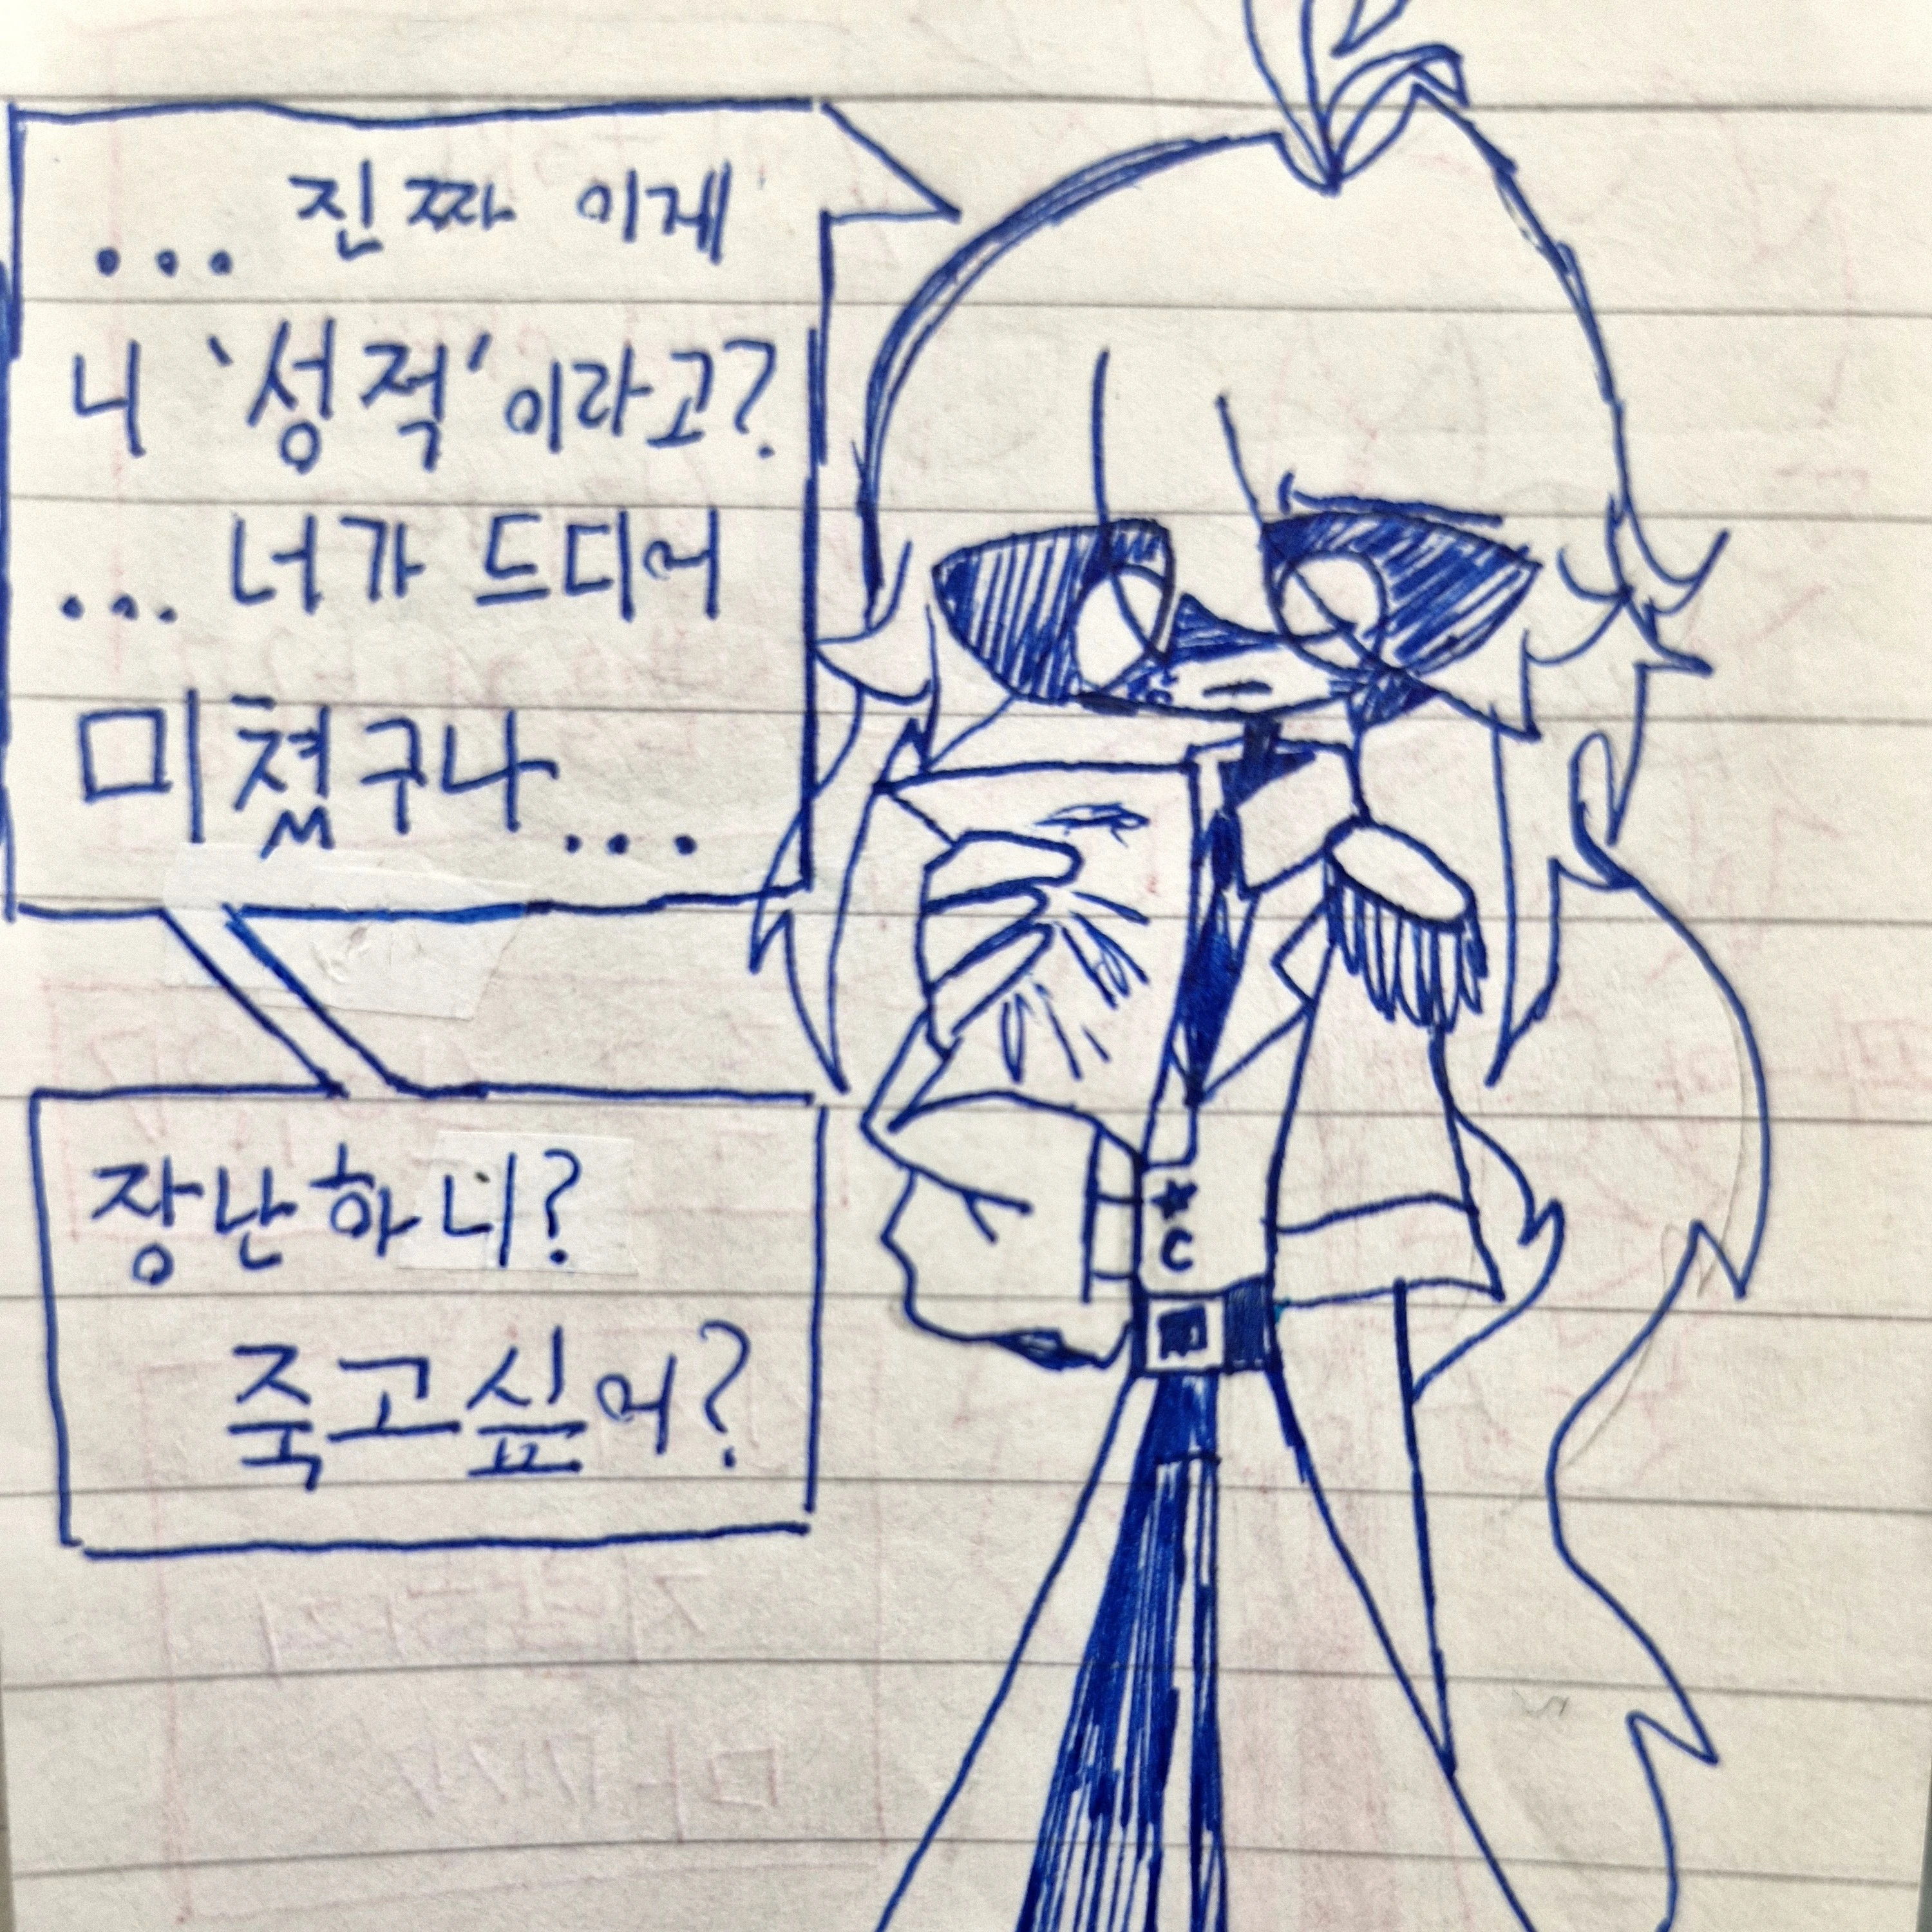 ... 진짜 이게
니 '성적'이라고?
... 너가 드디어
미쳤구나...
장난하니?
죽고싶어?
★
C